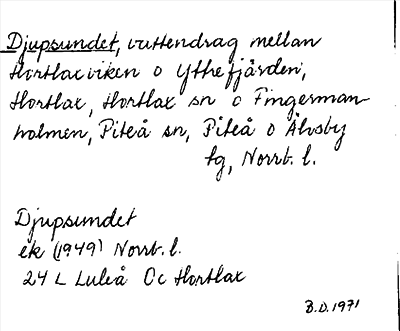 Djupsundet, vattendrag mellan
Hortlaxviken o Yttrefjärden,
Hortlax, Hortlax sn o Fingerman-
holmen, Piteå sn, Piteå o Älvsby
tg, Norrb. l.
Djupsundet
ek (1949) Norrb. l.
24 L Luleå Oc Hortlax
B.D. 1971